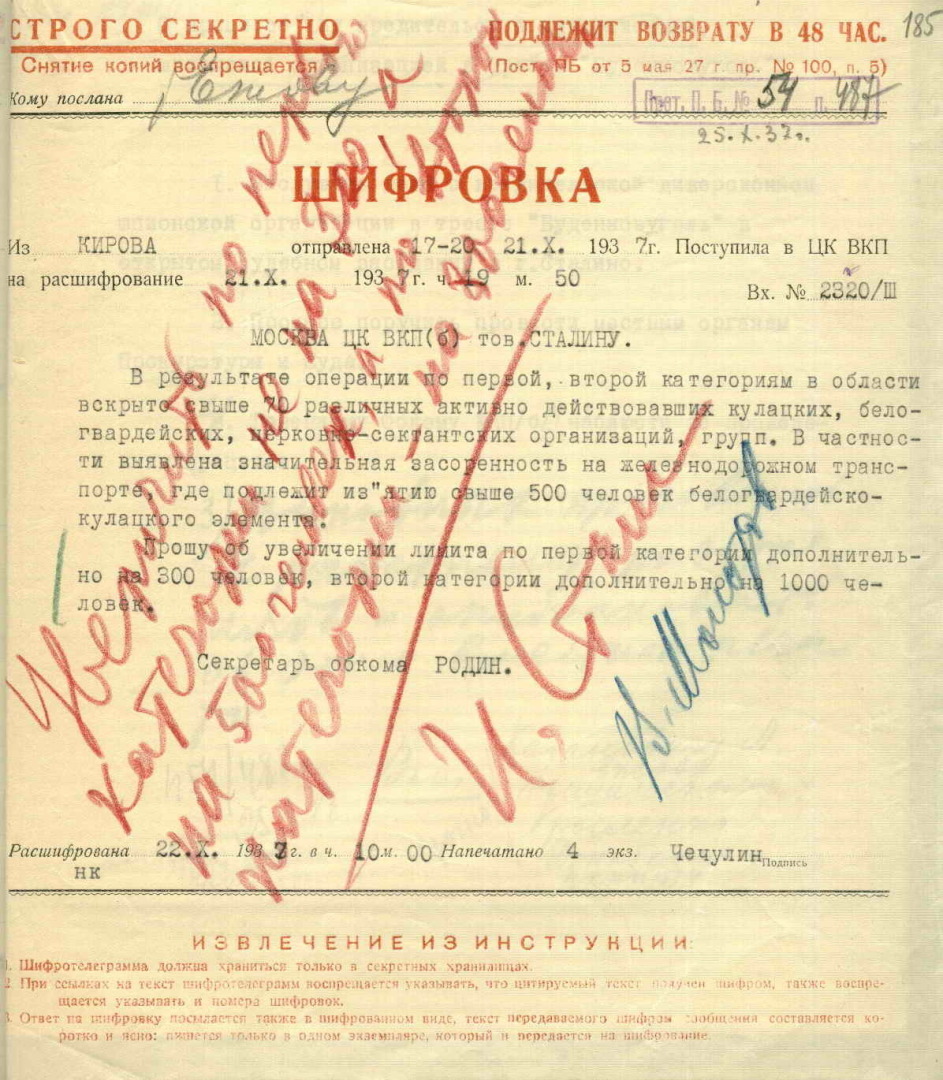 СТРОГО СЕКРЕТНО
ПОДЛЕЖИТ ВОЗВРАТУ В 48 ЧАС.
185
Снятие копий воспрещается
(Пост. ПБ от 5 мая 27 г. пр. № 100, п. 5)
Кому послана Ежову
Прот. П. Б. № 54 п. 487
25.X.37г.
ШИФРОВКА
Из КИРОВА отправлена 17-20 21.X. 1937г. Поступила в ЦК ВКП
на расшифрование 21.X. 1937г. ч. 19 м. 50
Вх. № 2320/Ш
МОСКВА ЦК ВКП(б) тов.СТАЛИНУ.
В результате операции по первой, второй категориям в области
вскрыто свыше 70 различных активно действовавших кулацких, бело-
гвардейских, церковно-сектантских организаций, групп. В частнос-
ти выявлена значительная засоренность на железнодорожном транс-
порте, где подлежит из"ятию свыше 500 человек белогвардейско-
кулацкого элемента.
Прошу об увеличении лимита по первой категории дополнитель-
но на 300 человек, второй категории дополнительно на 1000 че-
ловек.
Секретарь обкома РОДИН.
Увеличить по первой
категории не на 300, а
на 500 человек, а по второй
категории – на 800 человек
И. Сталин
В. Молотов
Расшифрована 22.X. 1937г. в ч. 10 м. 00 Напечатано 4 экз. Чечулин Подпись
НК
ИЗВЛЕЧЕНИЕ ИЗ ИНСТРУКЦИИ:
1. Шифротелеграмма должна храниться только в секретных хранилищах.
2. При ссылках на текст шифротелеграмм воспрещается указывать, что цитируемый текст получен шифром, также воспре-
щается указывать и номера шифровок.
3. Ответ на шифровку посылается также в шифрованном виде, текст передаваемого шифром сообщения составляется ко-
ротко и ясно: пишется только в одном экземпляре, который и передается на шифрование.